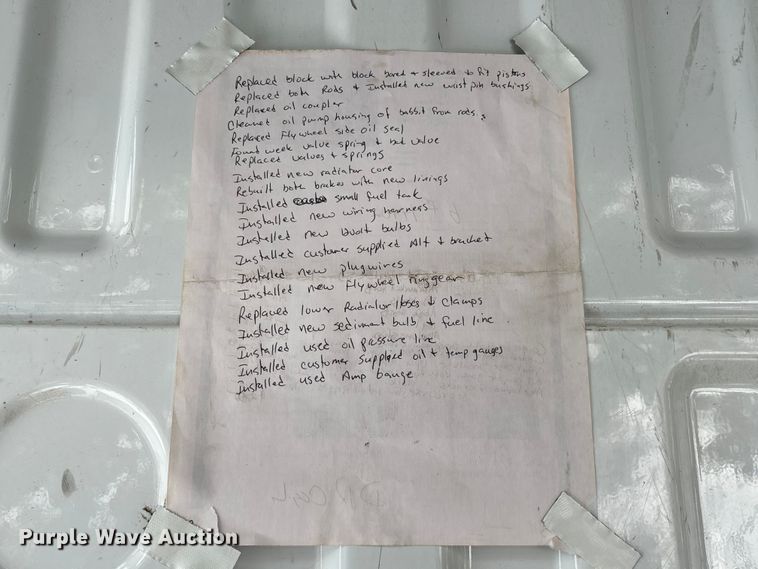 Replaced block with block bored + sleeved to fit pistons
Replaced both Rods + Installed new waist pin bushings
Replaced oil coupler
Cleaned oil pump housing of babbit from rods.
Replaced Flywheel side oil seal
Found week valve spring + bent valve
Replaced valves + springs
Installed new radiator core
Rebuilt both brakes with new linings
Installed small fuel tank
Installed new wiring harness
Installed new 12volt bulbs
Installed customer supplied Alt + bracket
Installed new plugwires
Installed new flywheel ring gear
Replaced lower Radiator Hoses + Clamps
Installed new sediment bulb + fuel line
Installed used oil pressure line
Installed customer supplied oil + temp gauges
Installed used Amp Gauge
Purple Wave Auction